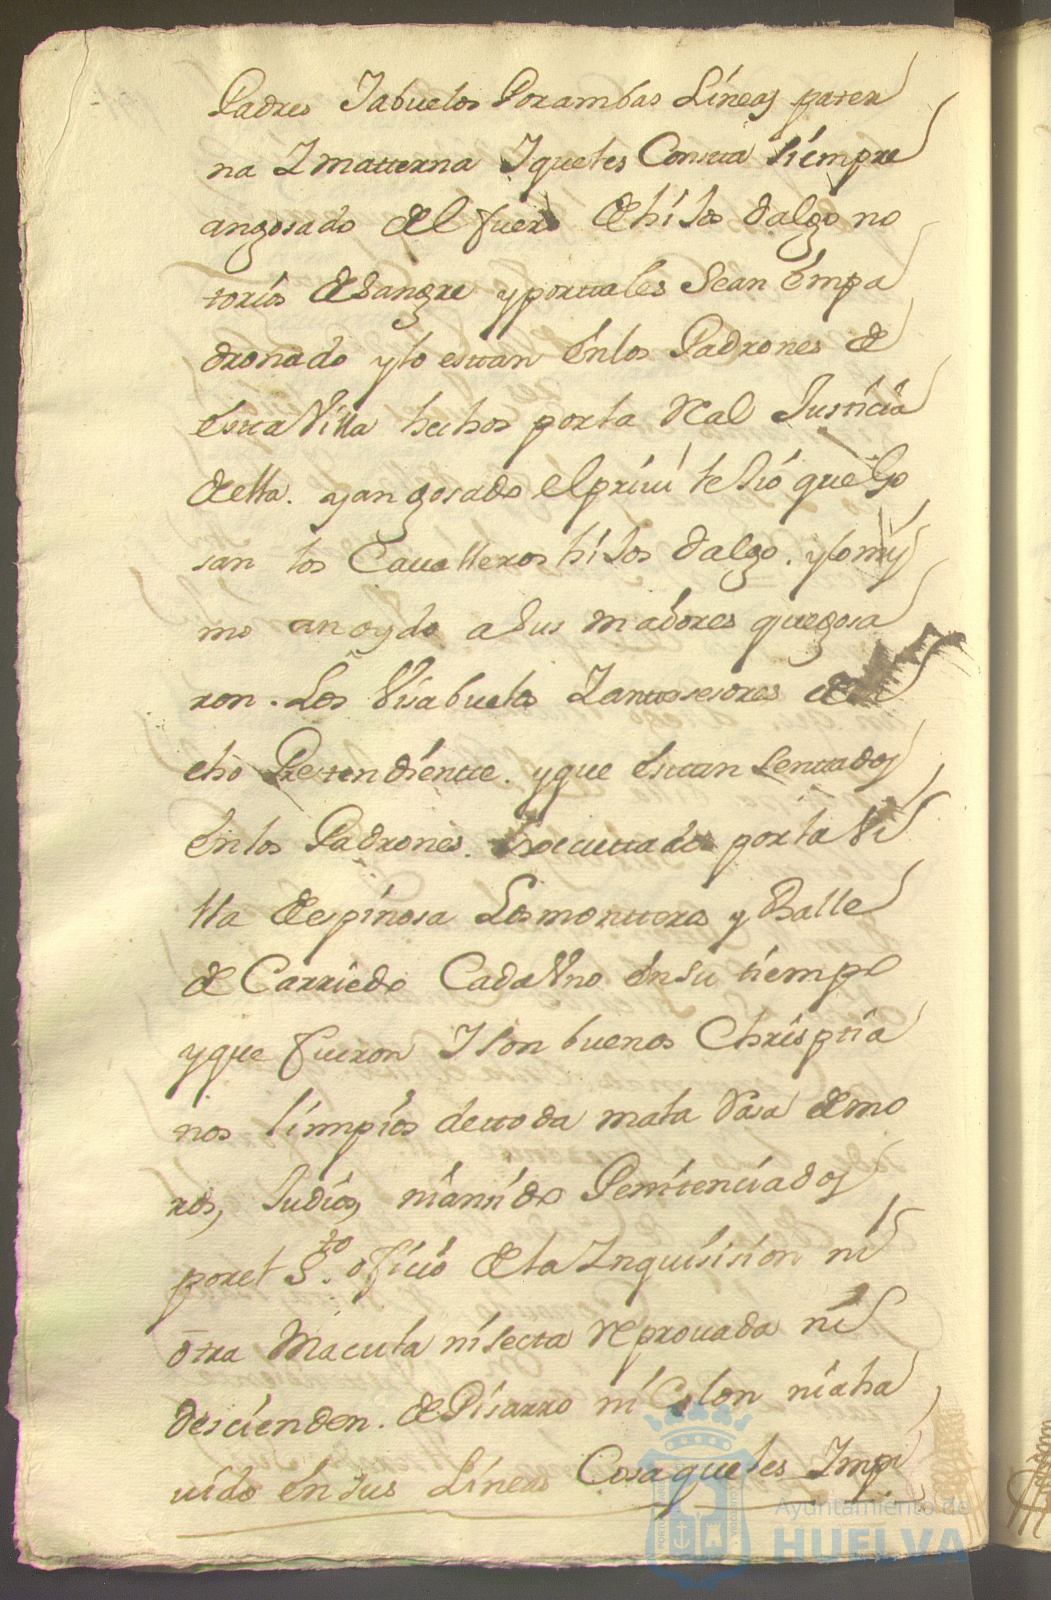 Padres Iabuelos Porambas Líneas pater
na Imatterna Iqueles Constta siempre
angosado del fuero dehisos dalgo no
torios desangre yporttales Sean empa
dronado ylo esttan enlos Padrones de
estta Villa hechos porla Real Justicia
della. yan gosado elprivi lesio que Go
san los Cavalleros hisos dalgo. ylo mis
mo an oydo a Sus maiores quegosa
ron. Los Visabuelos Ianttesesores de di
cho Prettendientte. yque esttan senttados
enlos Padrones. executtados porla Vi
lla deespinosa Losmontteros y Balle
de Carriedo CadaVno ensu tiempo
yque fueron Ison buenos Chrisptia
nos limpios dettoda mala Rasa demo
ros, Iudios, niansido Penitenciados
porel S.to oficio dela Inquisision ni
otra Macula nisecta Reprouada ni
descienden. de Pisarro ni Colon niaha
uido ensus Líneas Cosaqueles Impi
Ayuntamiento de
HUELVA